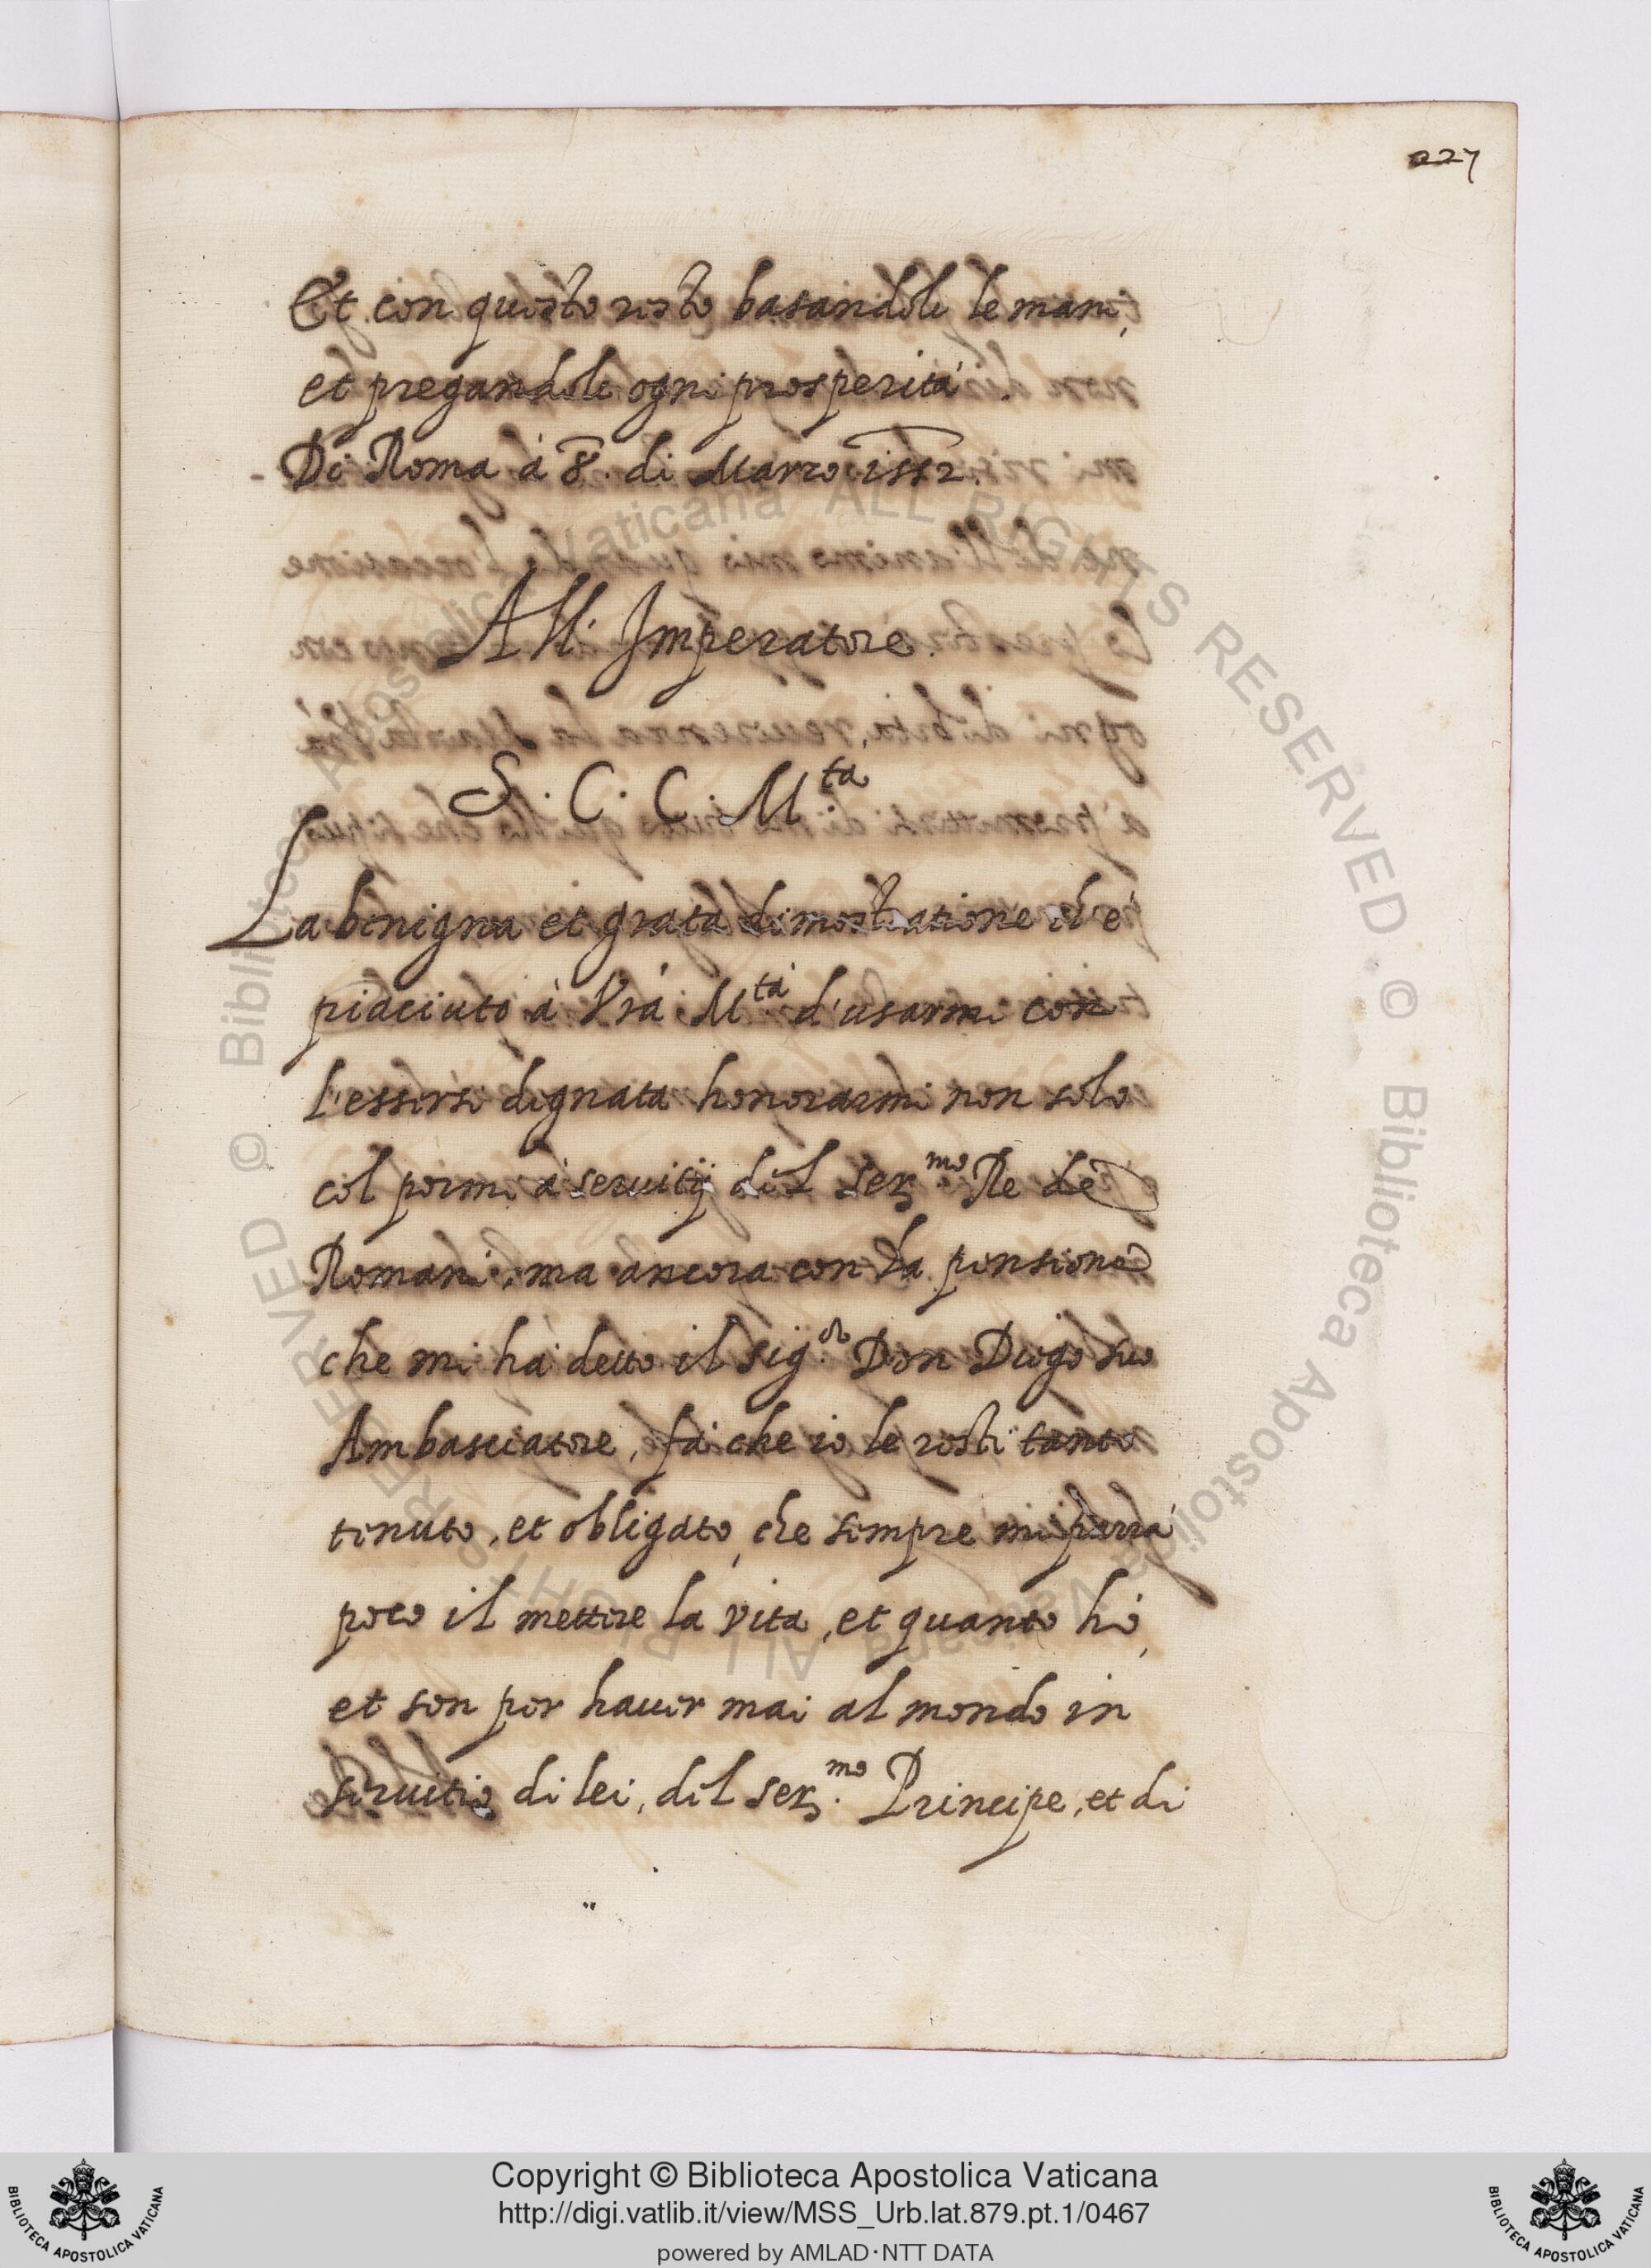 227
Et con questo resto basandole le mani,
et pregandole ogni prosperità.
Di Roma à 8. di Marzo 1552.
All' Imperatore.
S. C. C. M.ta
La benigna et grata dimostratione ch'è
piaciuto à Vrà M.tà d'usarmi con
l'essersi dignata honorarmi non solo
col pormi à servitij del Ser.mo Re de
Romani, ma ancora con la pensione
che mi hà detto il Sig.or Don Diego suo
Ambasciatore, fà che io le resti tanto
tenuto, et obligato, che sempre mi parrà
poco il mettere la vita, et quanto hò,
et son per haver mai al mondo in
servitio di lei, del Ser.mo Principe, et di
Copyright © Biblioteca Apostolica Vaticana
http://digi.vatlib.it/view/MSS_Urb.lat.879.pt.1/0467
powered by AMLAD·NTT DATA
BIBLIOTECA APOSTOLICA VATICANA
BIBLIOTECA APOSTOLICA VATICANA
© Biblioteca Apostolica Vaticana ALL RIGHTS RESERVED © Biblioteca Apostolica Vaticana ALL RIGHTS RESERVED